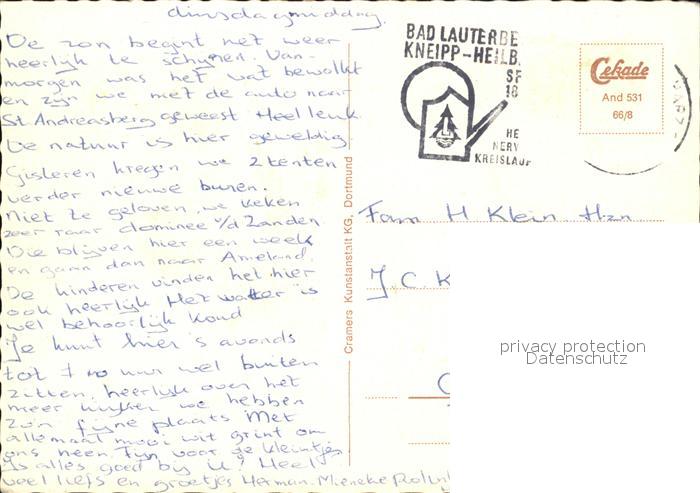 dinsdagmiddag.
De zon begint net weer
heerlijk te schijnen. Van-
morgen was het wat bewolkt
en zijn we met de auto naar
St Andreasberg geweest Heel leuk.
De natuur is hier geweldig
Gisteren kregen we 2 tenten
verder nieuwe buren.
Niet te geloven, we keken
zeer naar dominee v/d Zanden.
Die blijven hier een week
en gaan dan naar Ameland.
De kinderen vinden het hier
ook heerlijk Het water is
wel behoorlijk koud
Je kunt hier 's avonds
tot ± 10 uur wel buiten
zitten, heerlijk over het
meer kijken we hebben
zo'n fijne plaats Met
allemaal mooi wit grint om
ons heen. Fijn voor de kleintjes
Is alles goed bij u? Heel
veel liefs en groetjes Herman-Mieneke
Cramers Kunstanstalt KG, Dortmund
BAD LAUTERBE
KNEIPP-HEILB.
SP
18
HE
NERV
KREISLAUF
Cekade
And 531
66/8
Fam H Klein Hzn
J C K
privacy protection
Datenschutz